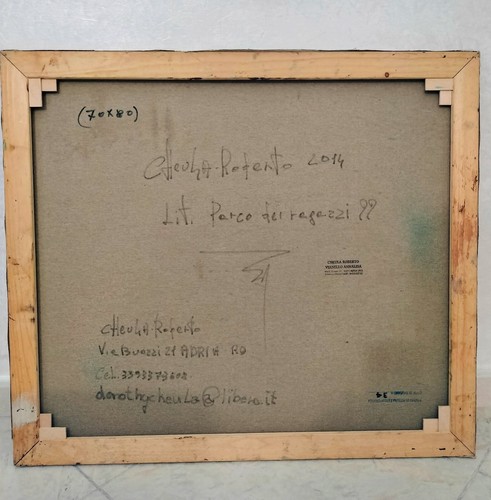 (70x80)
CHEULA-Roberto 2014
Tit. Parco dei ragazzi 99
CHEULA ROBERTO
CHEULA-Roberto
Via Buozzi 21 ADRIA RO
Cel. 3393373608
dorothycheula@libero.it
34